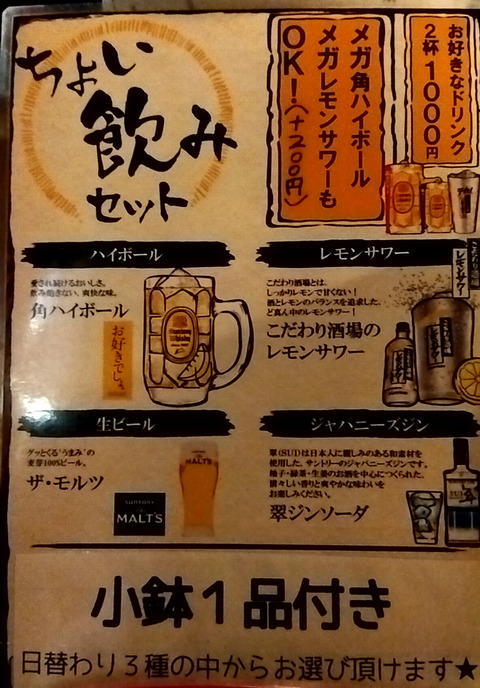 ちょい
飲み
セット
お好きなドリンク
2杯1000円
メガ角ハイボール
メガレモンサワーも
OK!(+200円)
ハイボール
愛され続けるおいしさ。
飲み飽きない、爽快な味。
角ハイボール
お好きでしょ。
レモンサワー
こだわり酒場とは、
しっかりレモンで甘くない!
酒とレモンのバランスを追求した、
ど真ん中のレモンサワー!
こだわり酒場の
レモンサワー
生ビール
グッとくる"うまみ"の
麦芽100%ビール。
ザ・モルツ
SUNTORY
MALT'S
MALT'S
ジャパニーズジン
翠(SUI)は日本人に親しみのある和素材を
使用した、サントリーのジャパニーズジンです。
柚子・緑茶・生姜のお酒を中心につくられた、
清々しい香りと爽やかな味わいを
お楽しみください。
翠ジンソーダ
小鉢1品付き
日替わり3種の中からお選び頂けます★